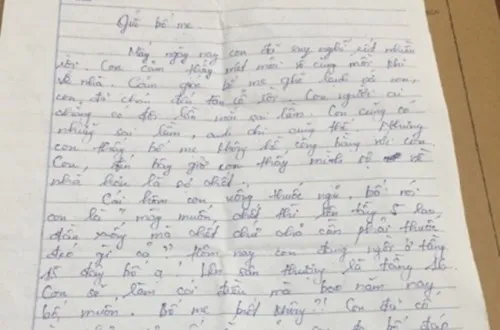 Gửi bố mẹ.
Mấy ngày nay con đã suy nghĩ rất nhiều
rồi. Con cảm thấy mệt mỏi vô cùng mỗi khi
về nhà. Cảm giác bố mẹ ghẻ lạnh với con,
con đã chán đến tận cổ rồi. Con người ai
chẳng có đôi lần mắc sai lầm. Con cũng có
những sai lầm, anh chị cũng thế. Nhưng
con thấy bố mẹ không hề công bằng với con
Con, đến bây giờ con thấy mình sợ về
nhà hơn là sợ chết
Cái hôm con uống thuốc ngủ bố nói
con là mày muốn chết thì lên tầng 5 lao
đầu xuống mà chết chứ chả cần phải thuốc
đéo gì cả?? Hôm nay con đang ngồi ở tầng
15 đây bố ạ! Lên sân thượng là tầng 16
Con sẽ làm cái điều mà bao năm nay
bố muốn. Bố mẹ biết không?! Con đã cố
bố đáp